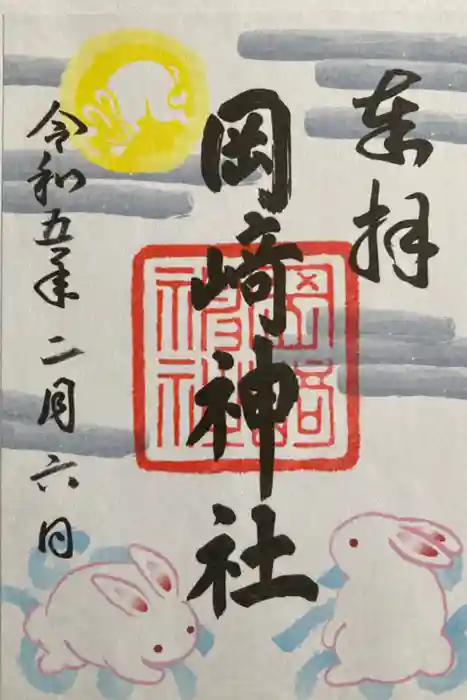 奉拝
岡﨑神社
岡﨑神社
令和五年二月六日